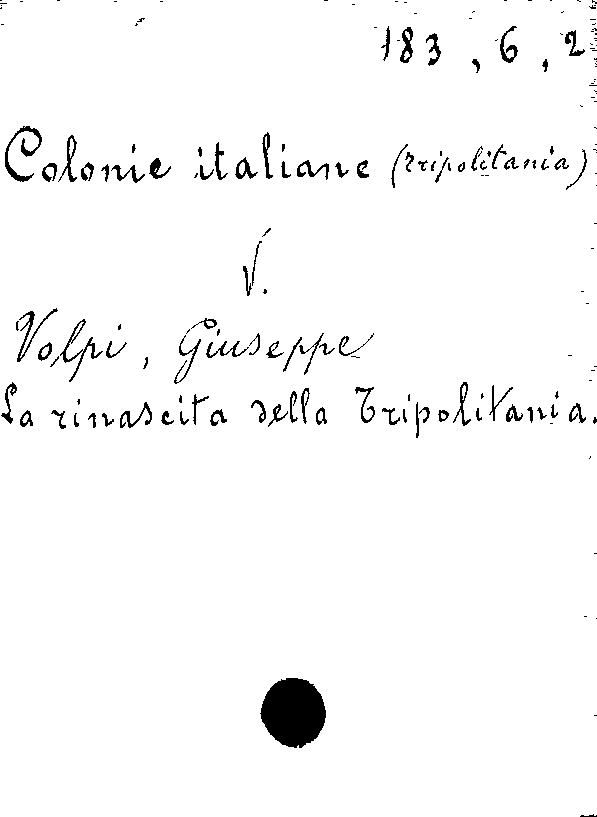 183, 6, 2
Colonie italiane (Tripolitania)
V.
Volpi, Giuseppe
La rinascita della Tripolitania.